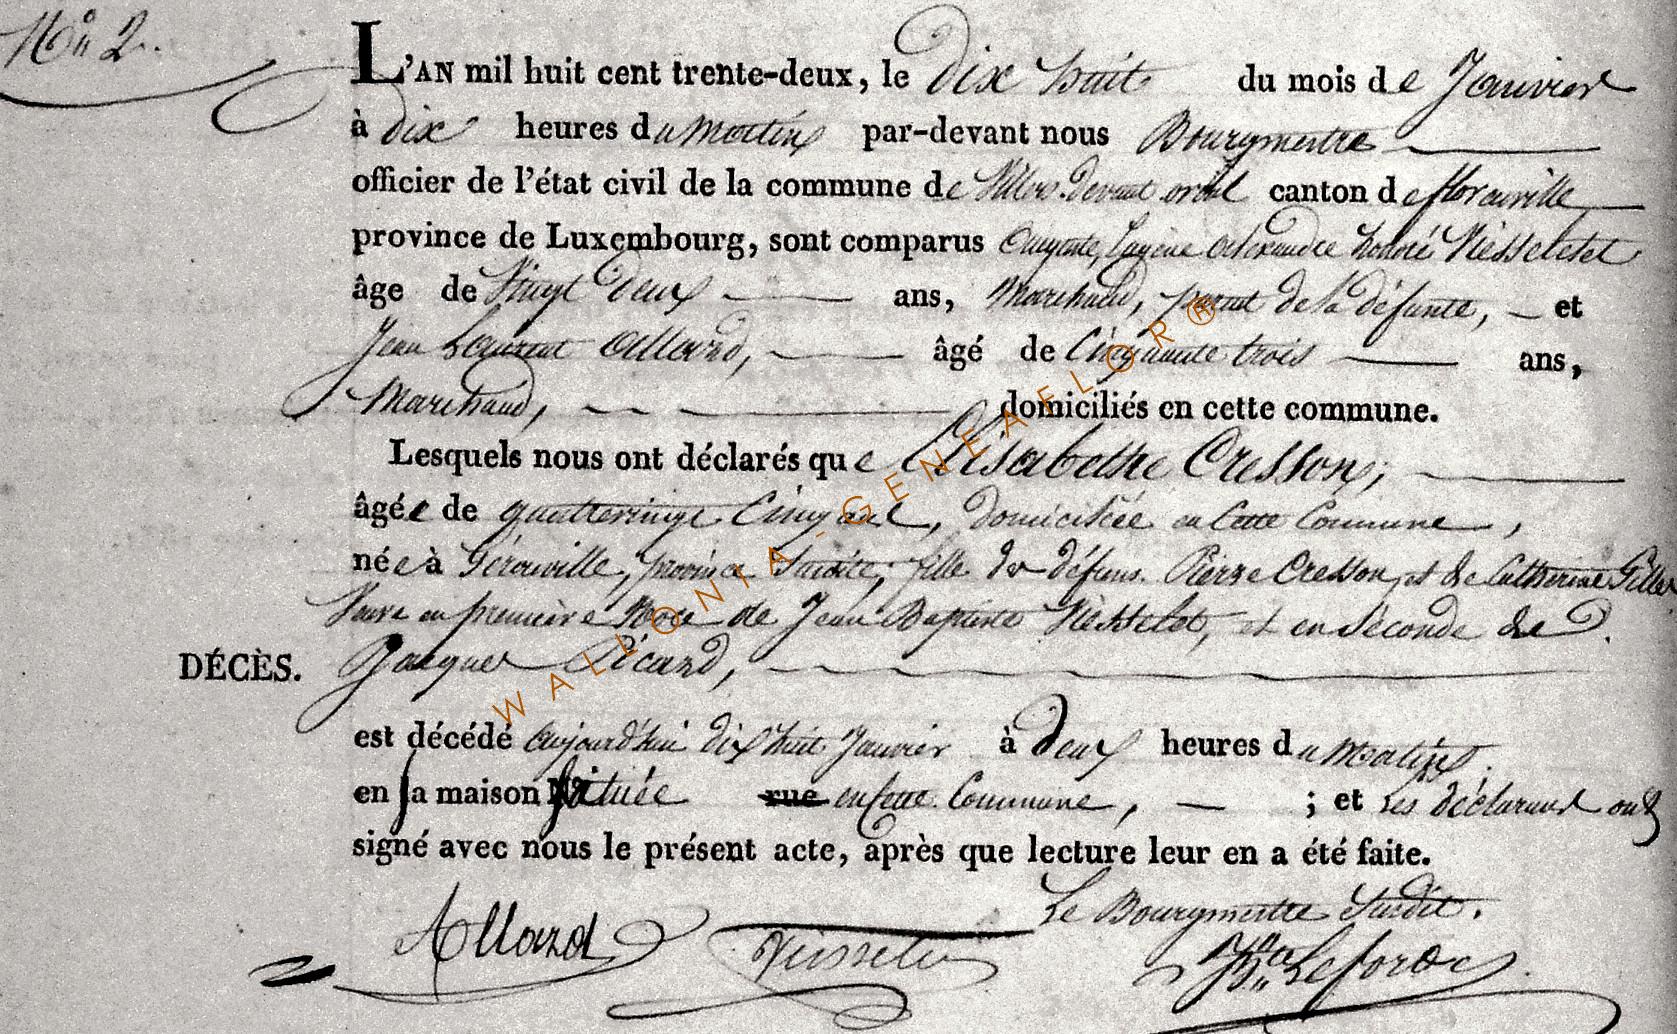 N° 2.
L'AN mil huit cent trente-deux, le dix huit du mois de Janvier
à dix heures du matin par-devant nous Bourgmestre
officier de l'état civil de la commune de Villers devant orval canton de florenville
province de Luxembourg, sont comparus Auguste, Eugène Alexandre honoré Nèsselet
âge de Vingt deux ans, Marchand, parent de la défunte, et
Jean Laurent Allard, âgé de Cinquante trois ans,
Marchand, domiciliés en cette commune.
Lesquels nous ont déclarés que Elisabethe Cresson,
âgée de quattevingt Cinq ans, domiciliée en Cette Commune,
née à Gérouville, province susdite, fille des défuns Pierre Cresson, et de Catherine Gilles
Veuve en première Noce de Jean Baptiste Nèsselet, et en séconde de
Jacques Picard,
DÉCÈS.
est décédé aujourd'hui dix huit Janvier à deux heures du matin
en sa maison située rue en cette Commune, ; et Les déclarans ont
signé avec nous le présent acte, après que lecture leur en a été faite.
Le Bourgmestre Susdit.
Allard
WALLONIA - GENEAFLOR ®